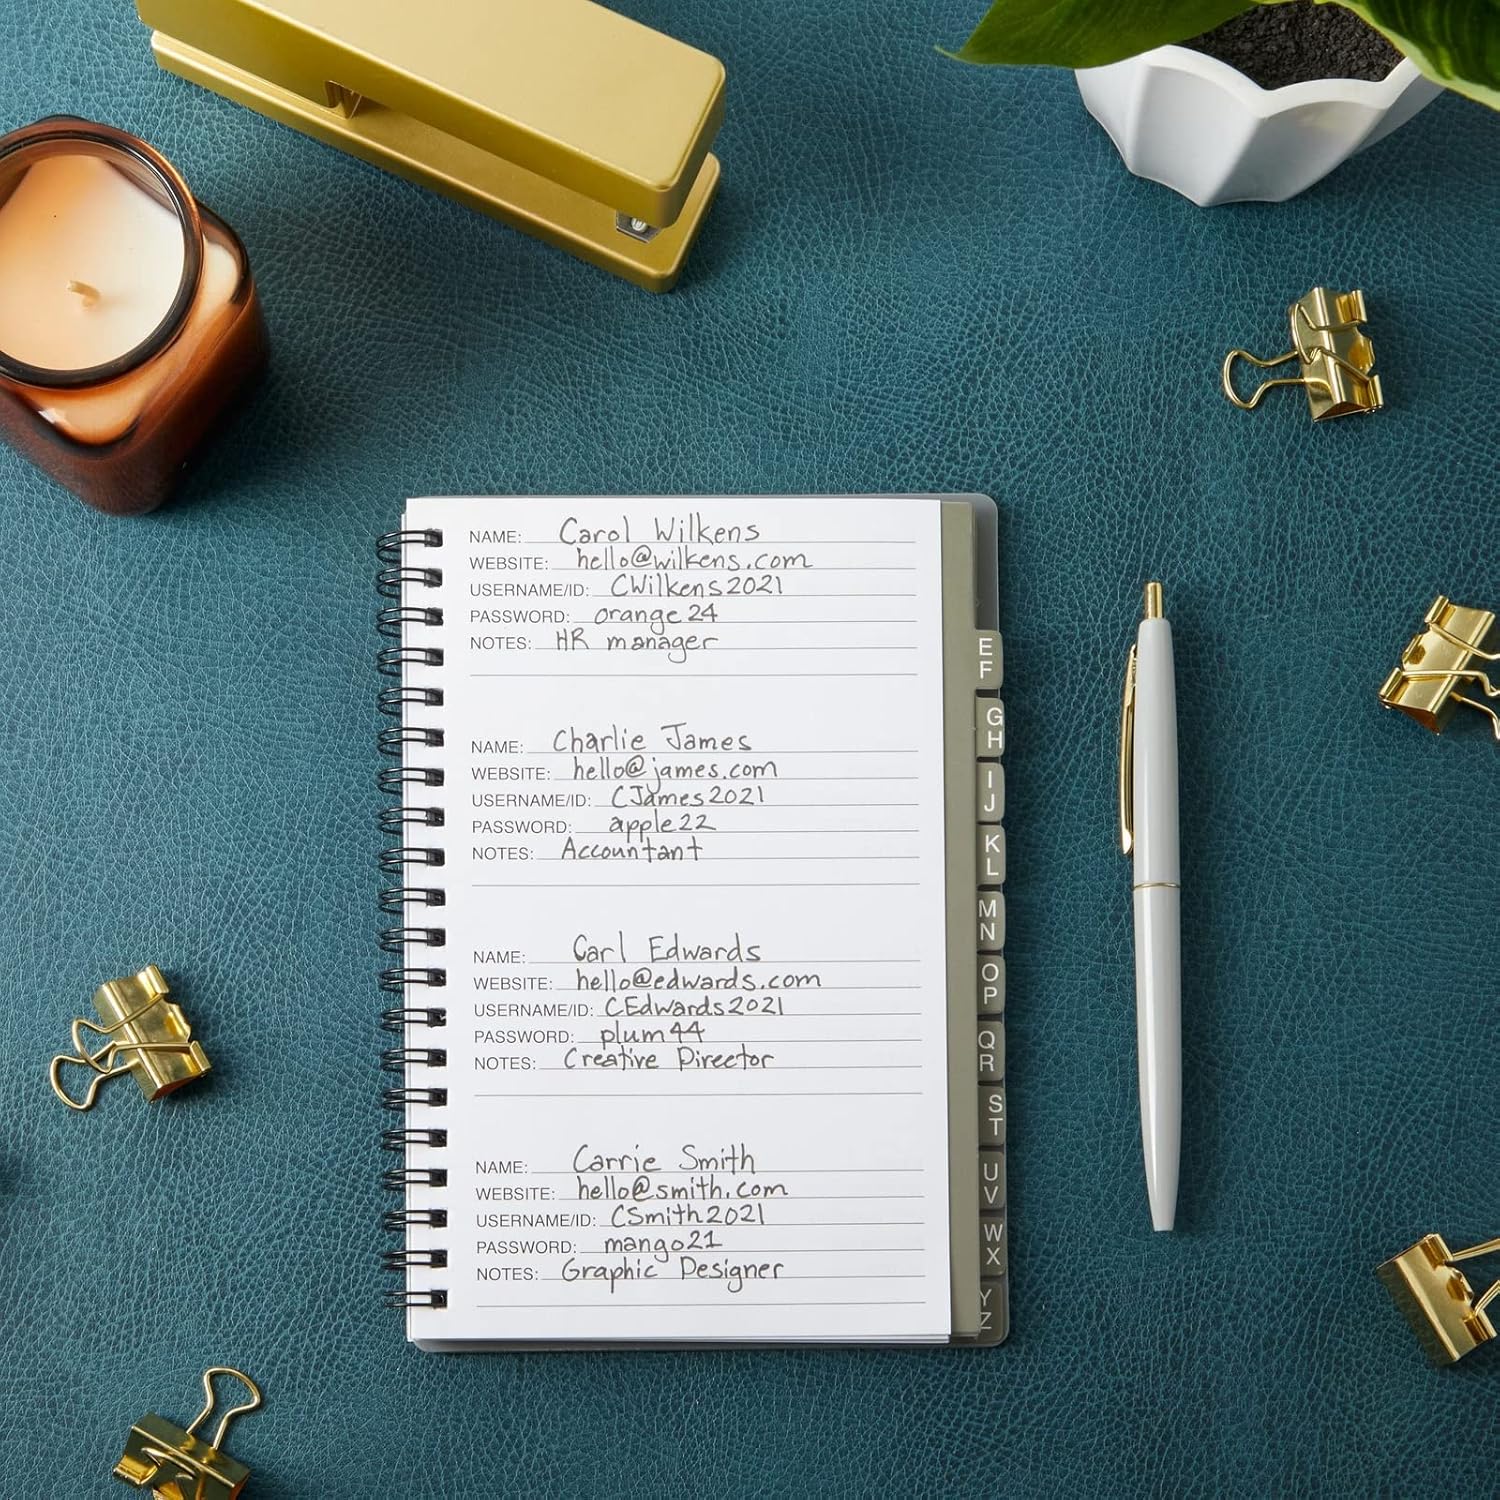 NAME: Carol Wilkens
WEBSITE: hello@wilkens.com
USERNAME/ID: CWilkens2021
PASSWORD: orange24
NOTES: HR manager
NAME: Charlie James
WEBSITE: hello@james.com
USERNAME/ID: CJames2021
PASSWORD: apple22
NOTES: Accountant
NAME: Carl Edwards
WEBSITE: hello@edwards.com
USERNAME/ID: CEdwards2021
PASSWORD: plum44
NOTES: Creative Director
NAME: Carrie Smith
WEBSITE: hello@smith.com
USERNAME/ID: CSmith2021
PASSWORD: mango21
NOTES: Graphic Designer
E
F
G
H
I
J
K
L
M
N
O
P
Q
R
S
T
U
V
W
X
Y
Z